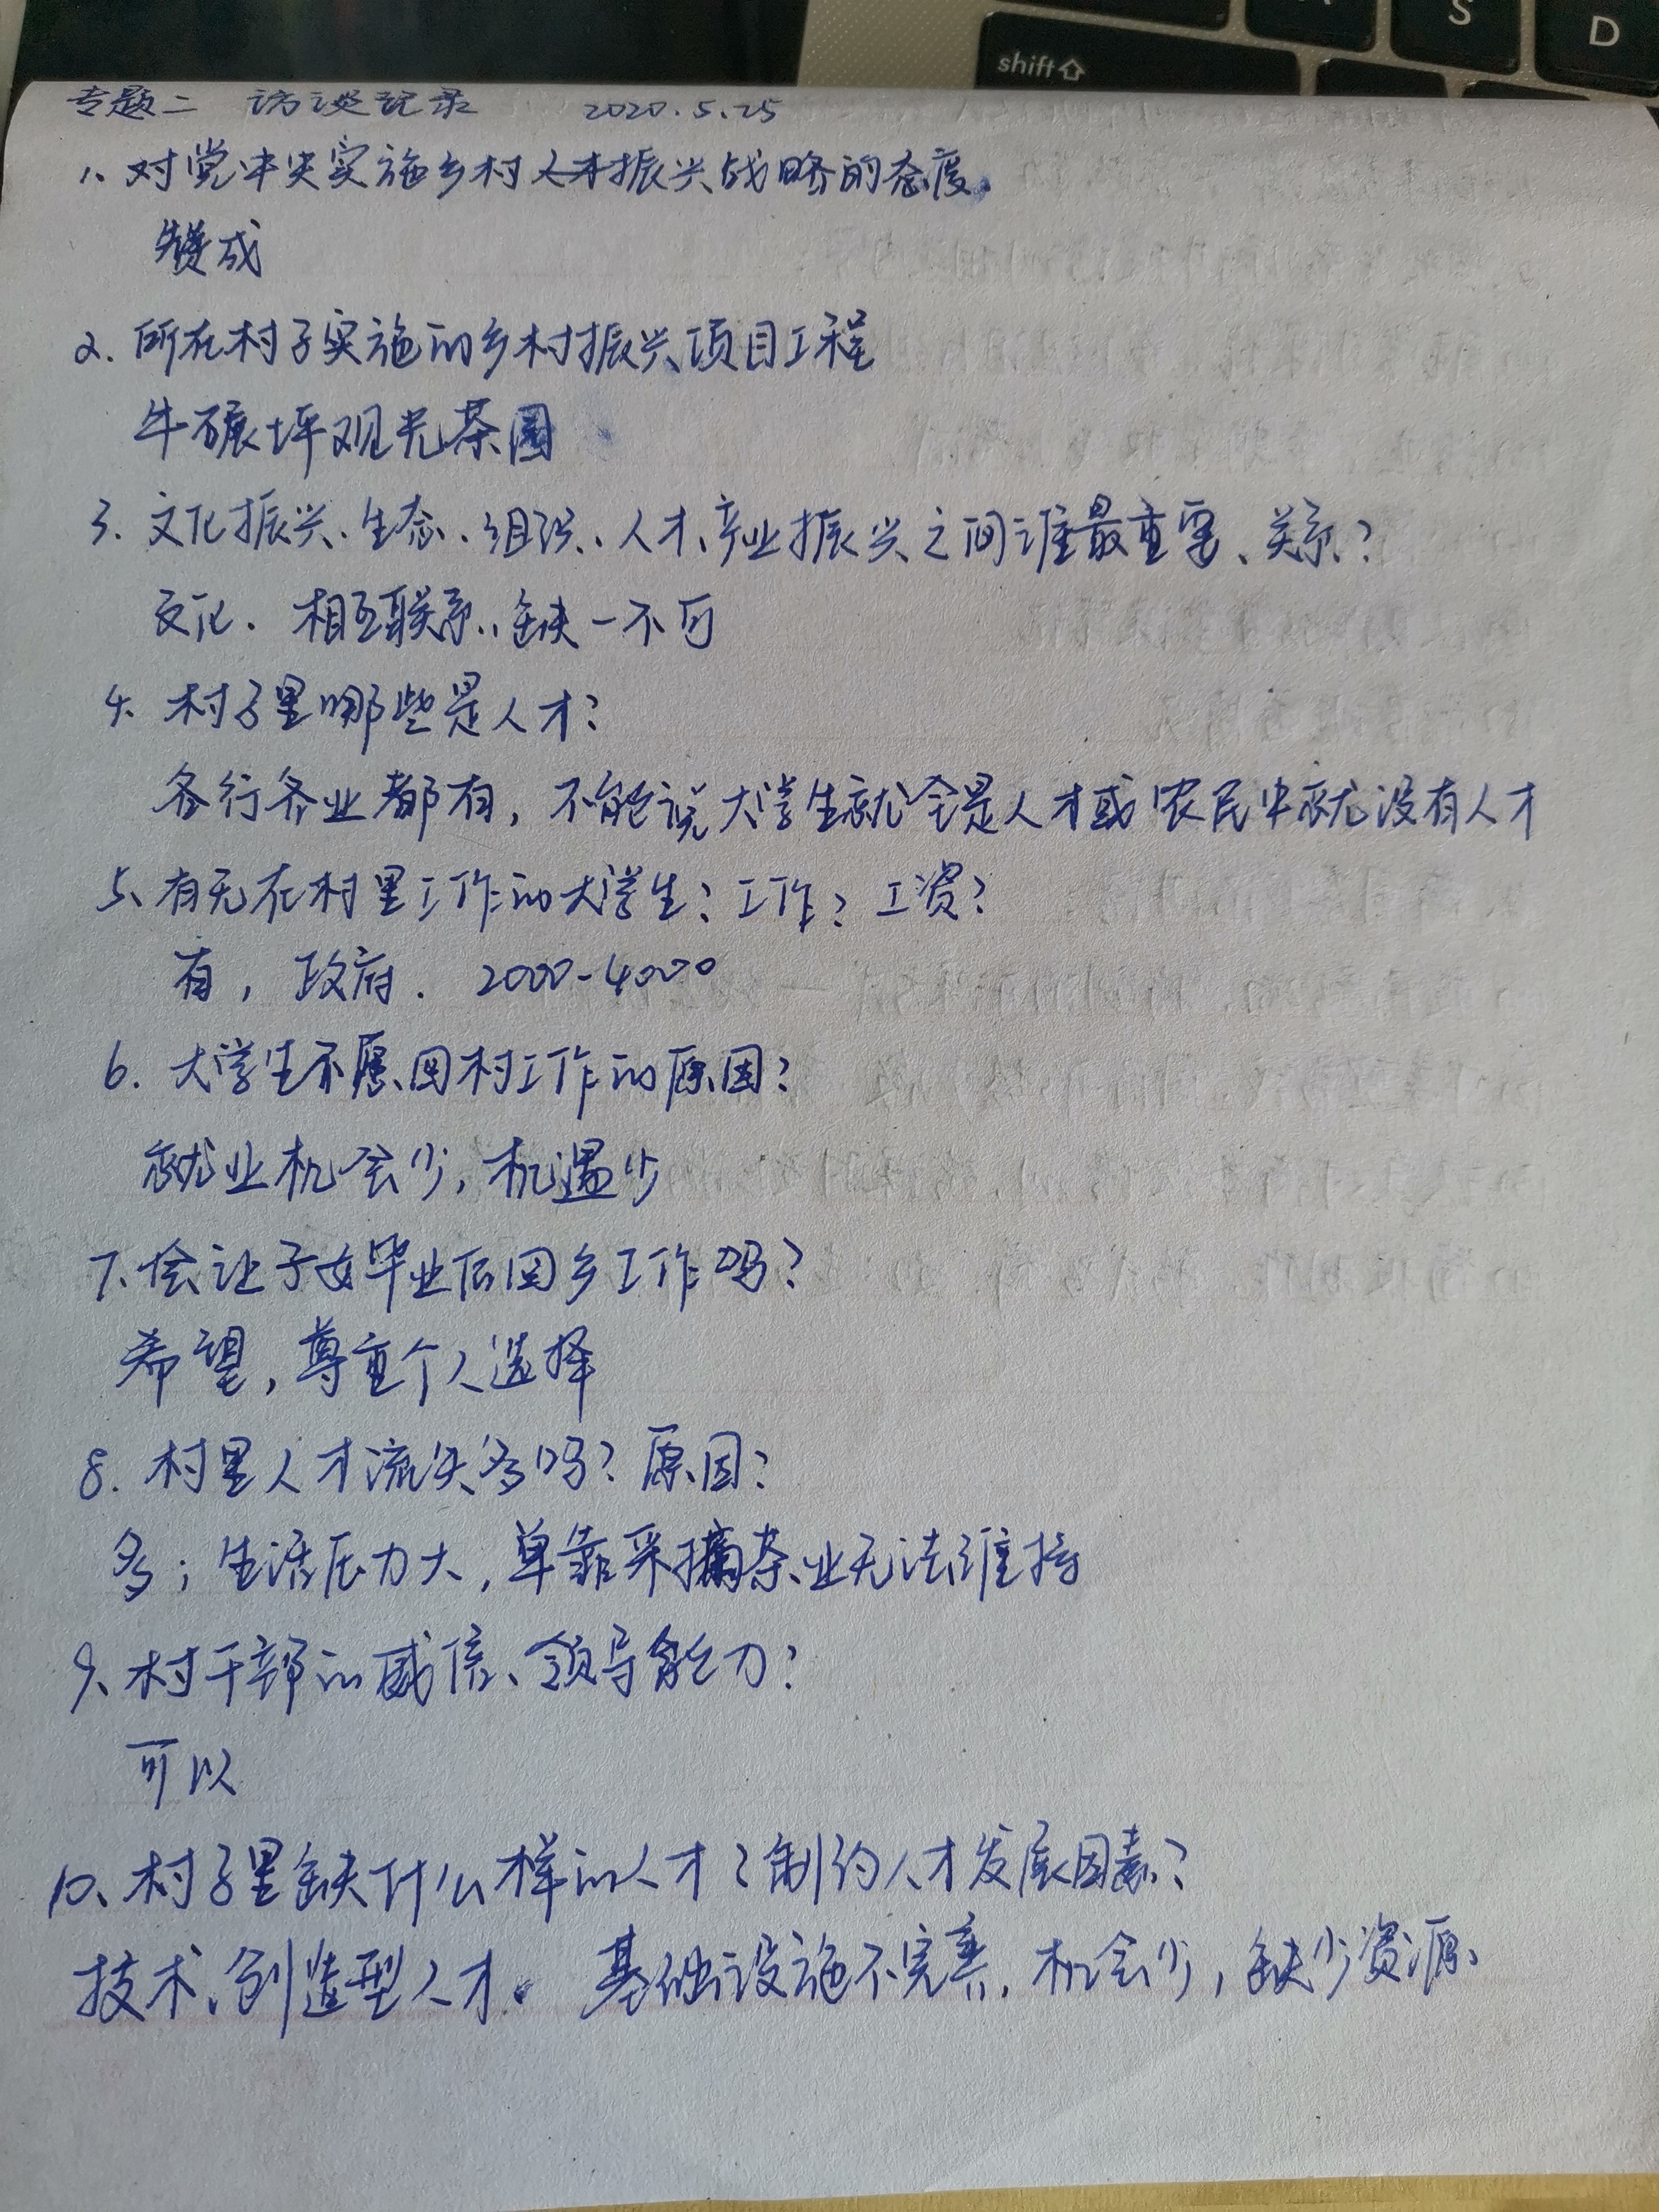 shift
S
D
专题二 访谈记录 2020.5.25
1、对党中央实施乡村人才振兴战略的态度。
赞成
2. 所在村子实施的乡村振兴项目工程
牛碾坪观光茶园
3. 文化振兴、生态、组织、人才、产业振兴之间谁最重要、关系？
文化. 相互联系，缺一不可
4. 村子里哪些是人才？
各行各业都有，不能说大学生就全是人才或农民中就没有人才
5、有无在村里工作的大学生？工作？工资？
有，政府. 2000-4000
6. 大学生不愿回村工作的原因？
就业机会少，机遇少
7、会让子女毕业后回乡工作吗？
希望，尊重个人选择
8. 村里人才流失多吗？原因？
多；生活压力大，单靠采摘茶业无法维持
9、村干部的威信、领导能力？
可以
10、村子里缺什么样的人才？制约人才发展因素？
技术、创造型人才。 基础设施不完善，机会少，缺少资源、